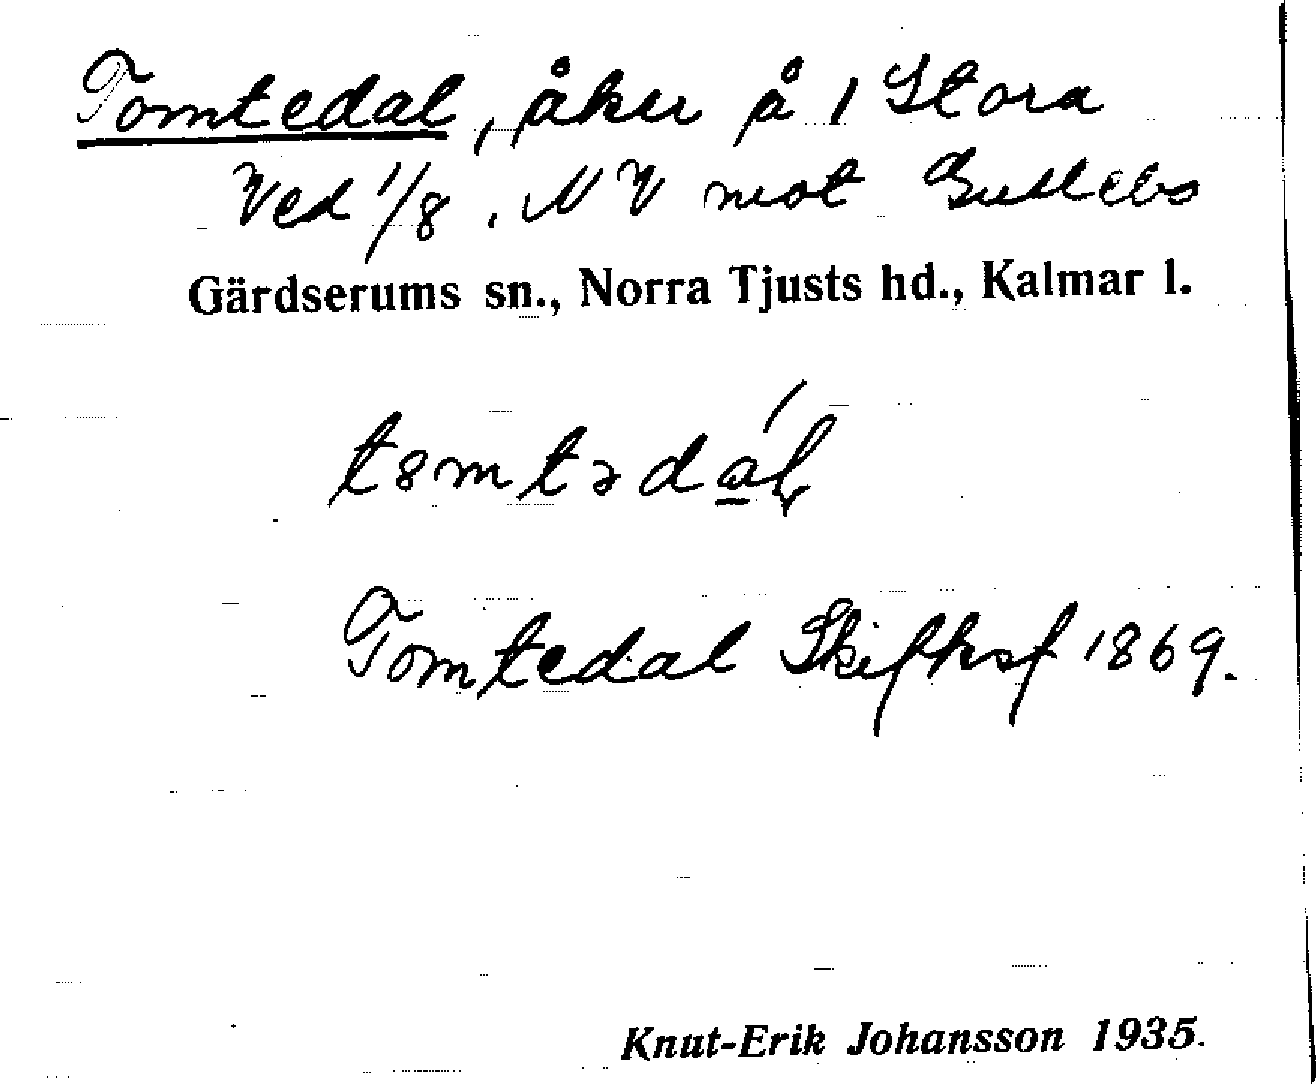 Tomtedal, åker å 1 Stora
Ved 1/8. NV mot Gullebo
Gärdserums sn., Norra Tjusts hd., Kalmar l.
Tomtedal Skifksf 1869.
Knut-Erik Johansson 1935.